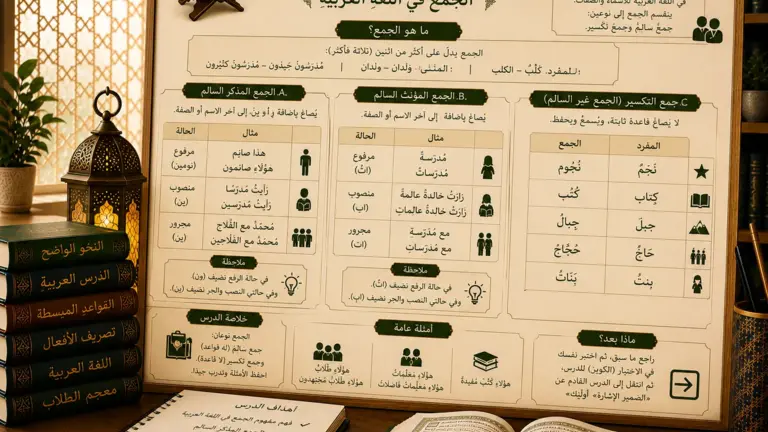 الجمع في اللغة العربية
في اللغة العربية للأسماء والصفات.
ينقسم الجمع إلى نوعين:
جمعٌ سالمٌ وجمعٌ تكسير.
ما هو الجمع؟
الجمع يدلّ على أكثر من اثنين (ثلاثة فأكثر):
المفرد. كَلْبٌ – الكلب | المثنى: وَلَدان – ولدان | مُدَرسُونَ جَيدون – مُدَرسُونَ كثيرُون
A. الجمع المذكر السالم
يُصاغ بإضافة و أو ين، إلى آخر الاسم أو الصفة.
مثال
الحالة
هذا صايَم
هؤلاءِ صائمون
مرفوع
(نومين)
رأيتُ مُدَرسًا
رأيتُ مُدَرسين
منصوب
(ين)
مُحمَدٌ مع الفَلاح
مُحمَدٌ مع الفلاحين
مجرور
(ين)
ملاحظة
في حالة الرفع نضيف (ون).
وفي حالتي النصب والجر نضيف (ين).
B. الجمع المؤنث السالم
يُصاغ بإضافة إلى آخر الاسم أو الصفة.
مثال
الحالة
مُدرسةٌ
مُدرساتٌ
مرفوع
(اتٌ)
زارَتْ خالدةُ عالمةً
زارَتْ خالدةُ عالِماتٍ
منصوب
(اتِ)
مع مُدرَسةٍ
مع مُدَرساتٍ
مجرور
(اتِ)
ملاحظة
في حالة الرفع نضيف (اتٌ).
وفي حالتي النصب والجر نضيف (اتٍ).
C. جمع التكسير (الجمع غير السالم)
لا يُصاغُ قاعدة ثابتة، ويُسمعُ ويحفظ.
المفرد
الجمع
نَجْمٌ
نُجُوم
كِتاب
كُتُب
جبلَ
جِبالُ
حَاجٌ
حُجَّاجُ
بِنتُ
بَنَاتُ
خلاصة الدرس
الجمع نوعان:
جمع سالمُ (له قواعد)
وجمع تكسير (لا قاعدة).
احفظ الأمثلة وتدرب جيدًا.
أمثلة عامة
هؤلاءِ طُلّابٌ
هؤلاءِ طُلّابٌ مُجتَهِدون
هؤلاءِ مُعلِّماتٌ
هؤلاءِ مُعلِّماتٌ فَاضلات
هؤلاءِ كُتُبٌ مُفيدةٌ
ماذا بعد؟
راجع ما سبق، ثم اختبر نفسك
في الاختبار (الكوين) للدرس،
ثم انتقل إلى الدرس القادم عن
«الضمير الإشارة» أوليْك»
النحو الواضح
الدرس العربية
القواعد المبسطة
تصريف الأفعال
اللغة العربية
معجم الطلاب
أهداف الدرس
فهم مفهوم الجمع في اللغة العربية
الجمع المذكر السالم